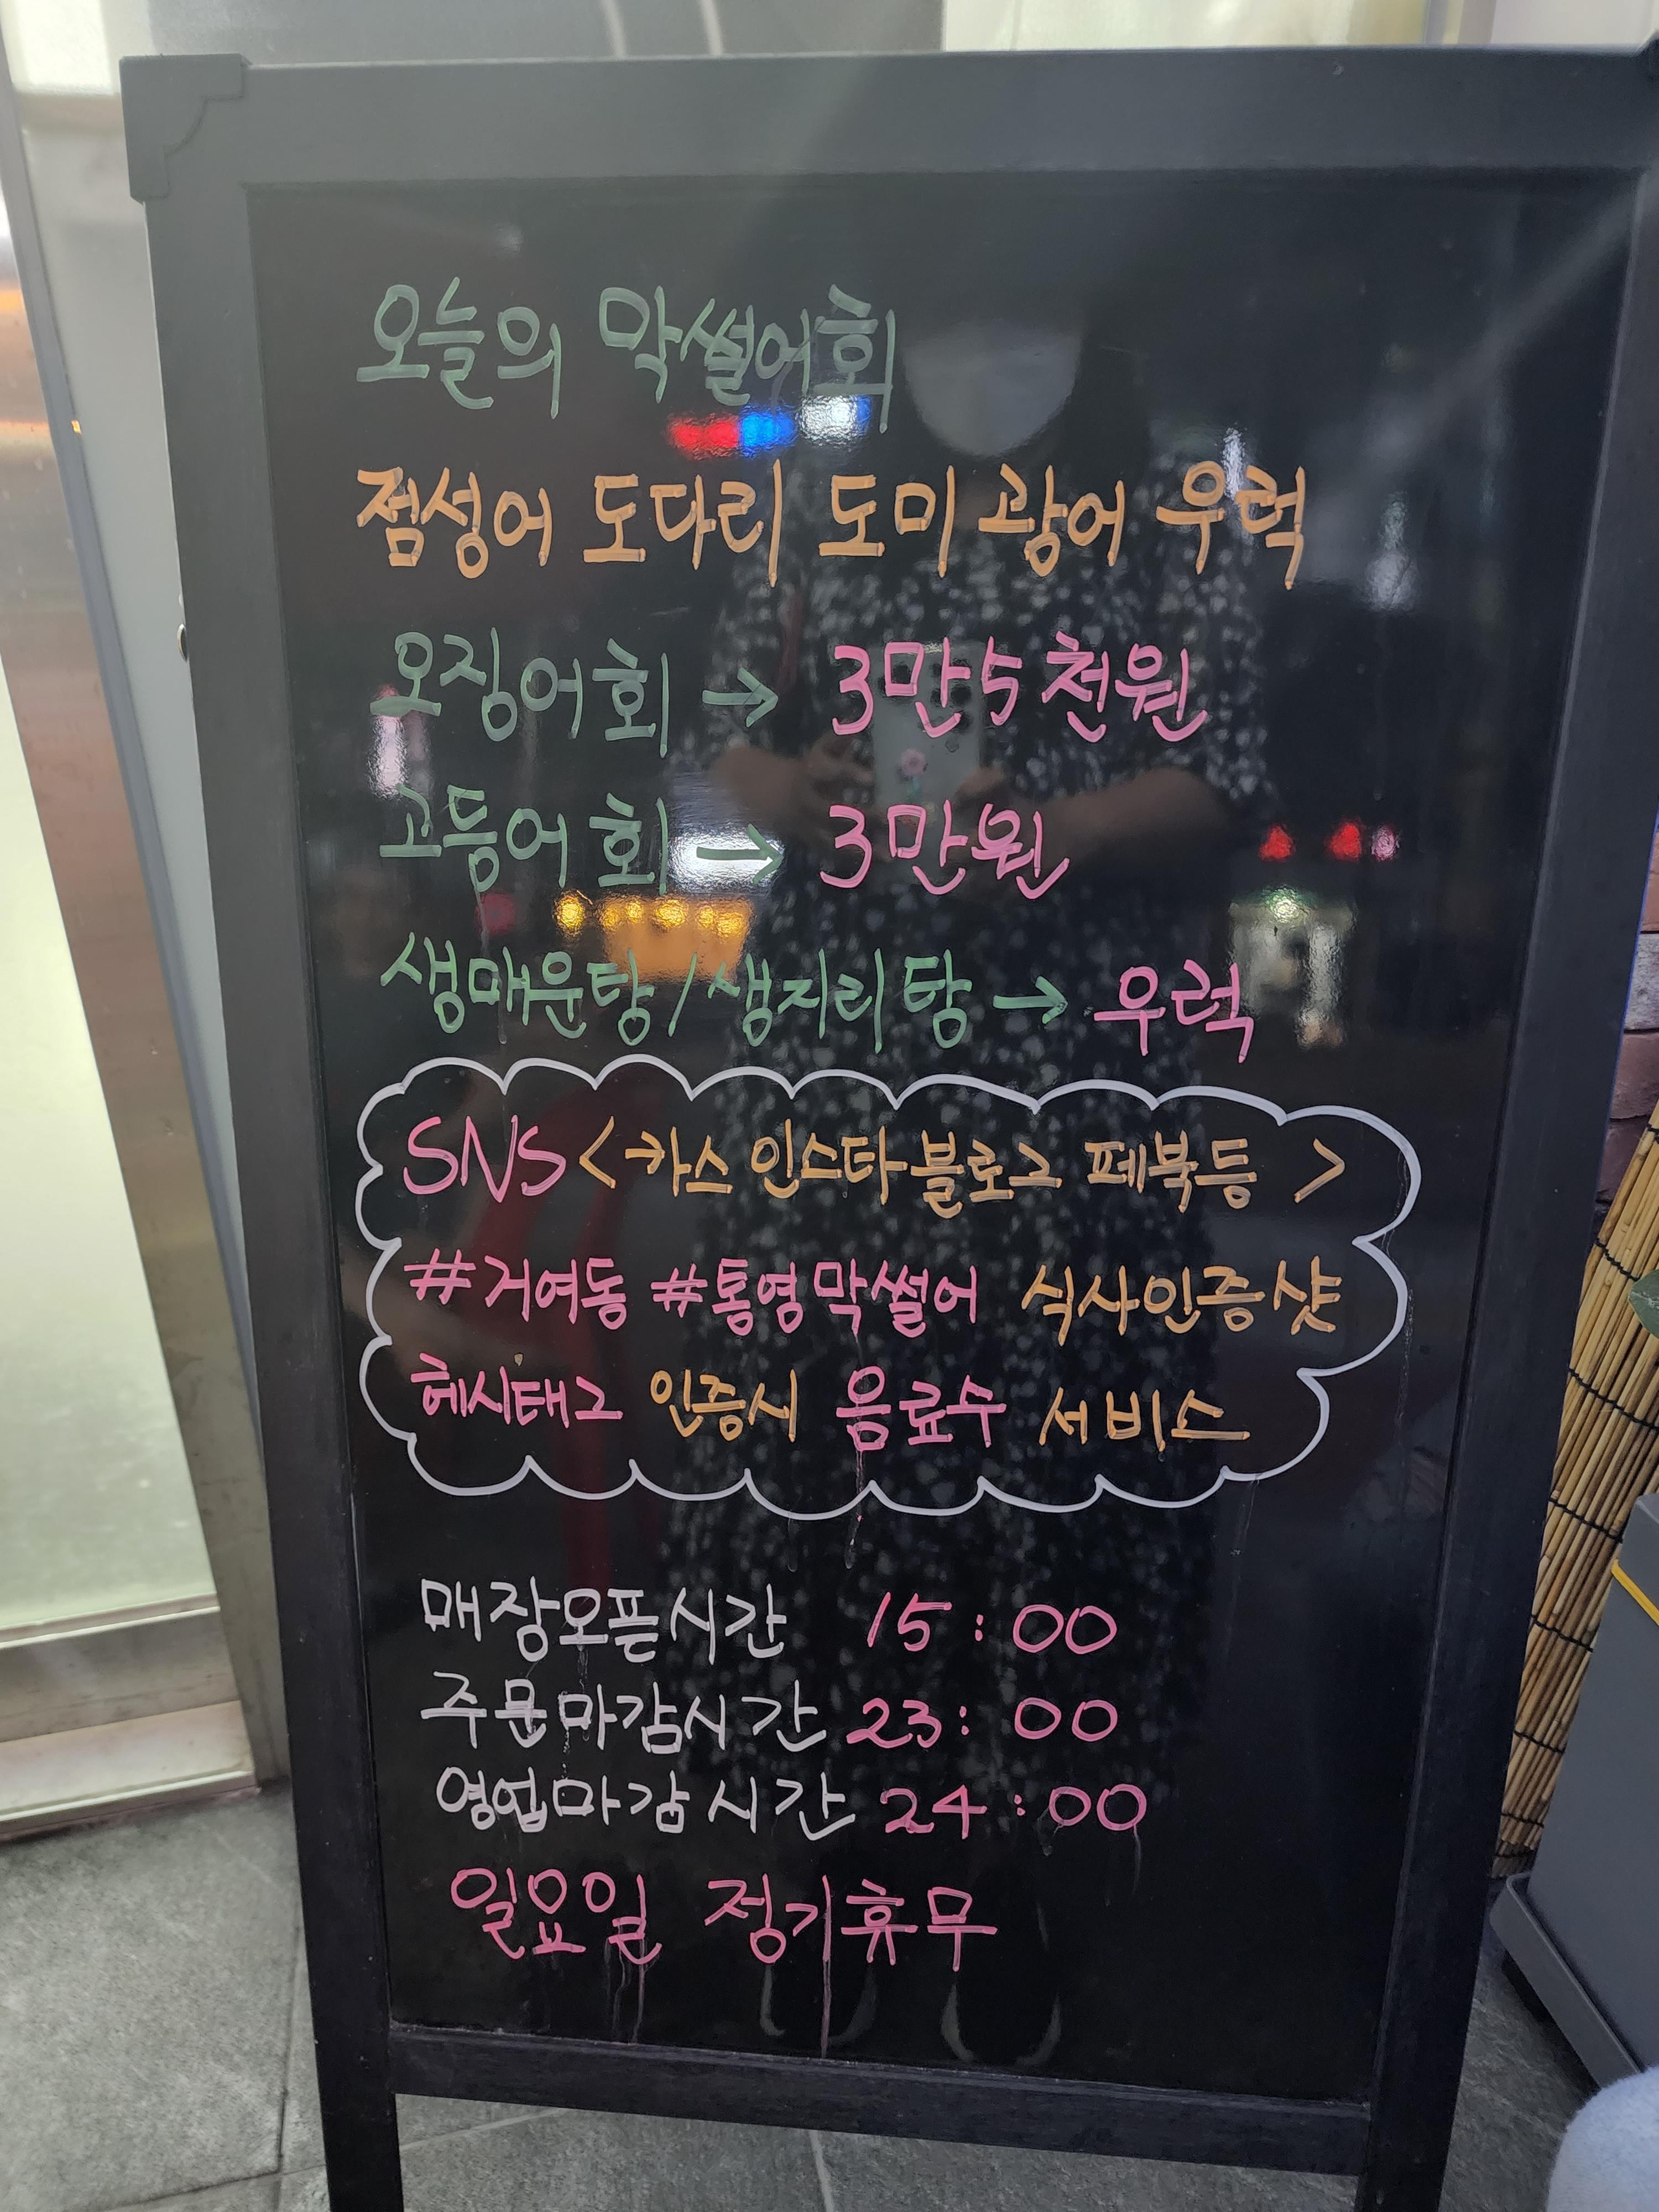 오늘의 막썰어회
점성어 도다리 도미 광어 우럭
오징어회 → 3만5천원
고등어회 → 3만원
생매운탕/생지리탕 → 우럭
SNS<카스 인스타 블로그 페북등 >
#거여동 #통영막썰어 식사인증샷
헤시태그 인증시 음료수 서비스
매장오픈시간 15:00
주문마감시간 23:00
영업마감시간 24:00
일요일 정기휴무